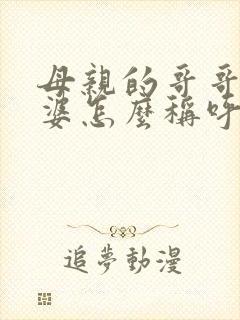 母親的哥哥
婆怎麼稱呼
追夢動漫